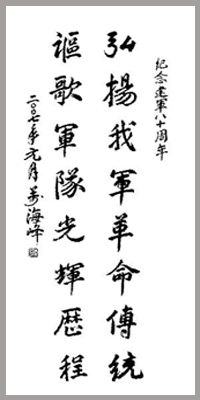 纪念建军八十周年
弘揚我軍革命傳統
謳歌軍隊光輝歷程
二〇〇七年元月 萬海峰